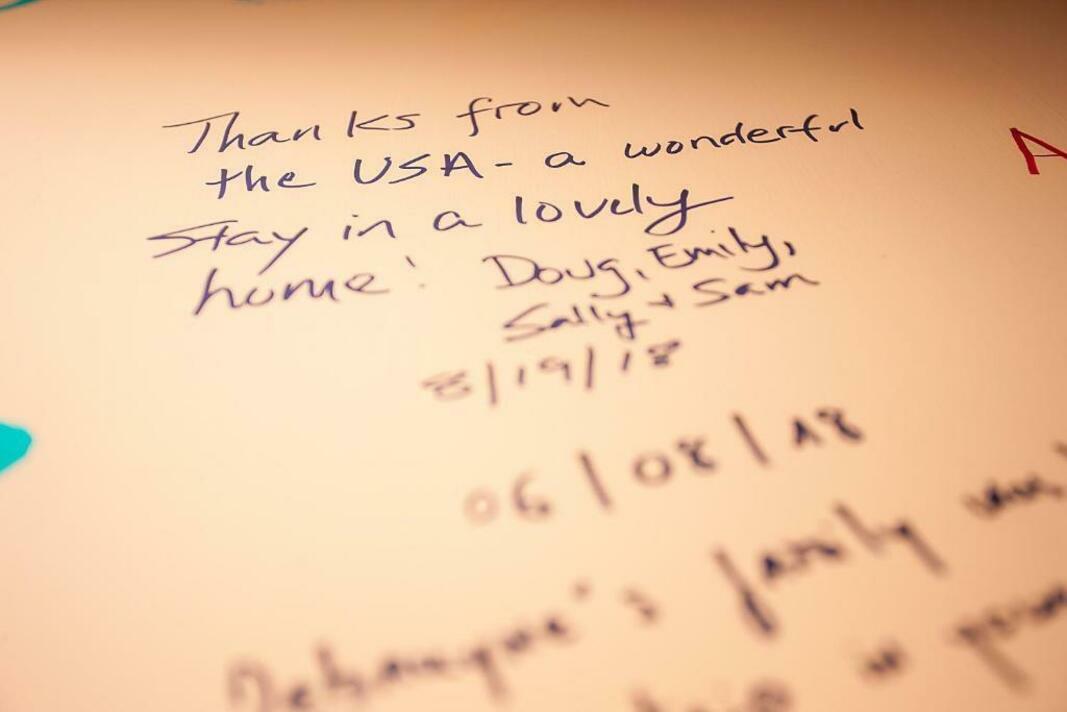 Thanks from
the USA - a wonderful
stay in a lovely
home! Doug, Emily,
Sally + Sam
8/19/18
06/08/18
's family
A